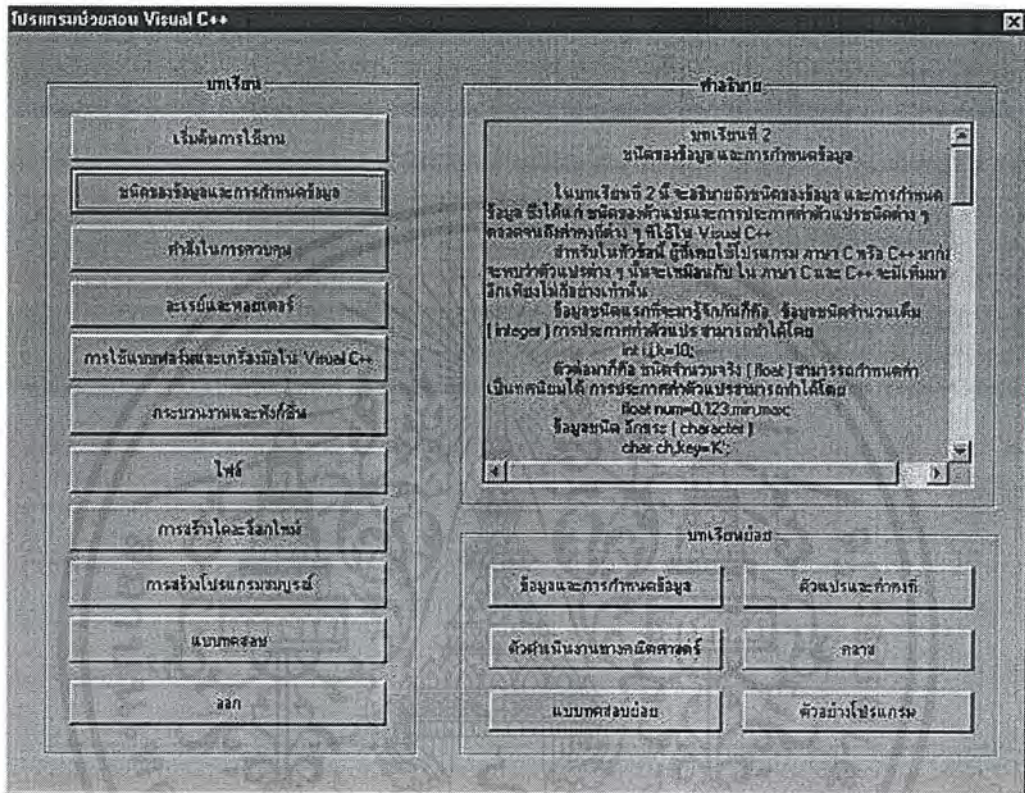 โปรแกรมช่วยสอน Visual C++
บทเรียน
เริ่มต้นการใช้งาน
ชนิดของข้อมูลและการกำหนดข้อมูล
คำสั่งในการควบคุม
อะเรย์และพอยเตอร์
การใช้แบบฟอร์มและเครื่องมือใน Visual C++
กระบวนงานและฟังก์ชั่น
ไฟล์
การสร้างไดอะล็อกใหม่
การสร้างโปรแกรมสมบูรณ์
แบบทดสอบ
ออก
คำอธิบาย
บทเรียนที่ 2
ชนิดของข้อมูล และการกำหนดข้อมูล
ในบทเรียนที่ 2 นี้ จะอธิบายถึงชนิดของข้อมูล และการกำหนด
ข้อมูล ซึ่งได้แก่ ชนิดของตัวแปรและการประกาศค่าตัวแปรชนิดต่าง ๆ
ตลอดจนถึงค่าคงที่ต่าง ๆ ที่ใช้ใน Visual C++
สำหรับในหัวข้อนี้ ผู้ที่เคยใช้โปรแกรม ภาษา C หรือ C++ มาก่อ
จะพบว่าตัวแปรต่าง ๆ นั้นจะเหมือนกับ ใน ภาษา C และ C++ จะมีเพิ่มมา
อีกเพียงไม่กี่อย่างเท่านั้น
ข้อมูลชนิดแรกที่จะมารู้จักกันก็คือ ข้อมูลชนิดจำนวนเต็ม
( integer ) การประกาศค่าตัวแปร สามารถทำได้โดย
int i,j,k=10;
ตัวต่อมาก็คือ ชนิดจำนวนจริง ( float ) สามารรถกำหนดค่า
เป็นทศนิยมได้ การประกาศค่าตัวแปรสามารถทำได้โดย
float num=0.123,min,max;
ข้อมูลชนิด อักขระ ( character )
char ch,key='K';
บทเรียนย่อย
ข้อมูลและการกำหนดข้อมูล
ตัวแปรและค่าคงที่
ตัวดำเนินงานทางคณิตศาสตร์
คลาส
แบบทดสอบย่อย
ตัวอย่างโปรแกรม